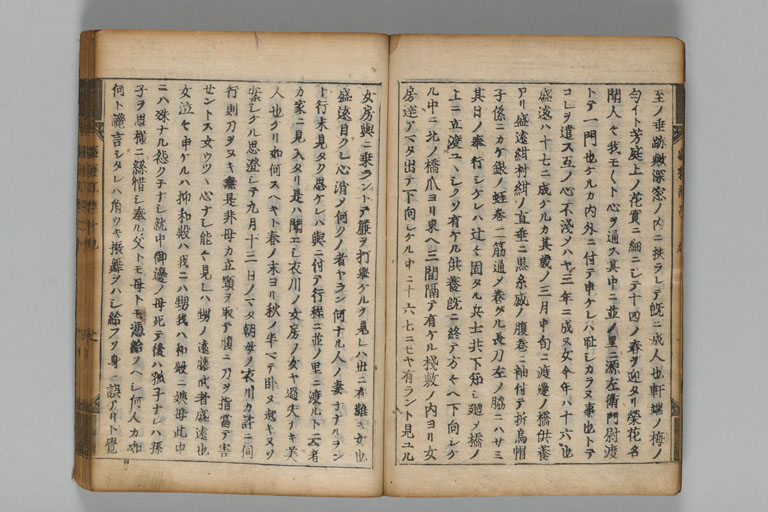 至ノ垂跡歟深窓ノ内ニ扶ラレテ既ニ成人也軒端ノ梅ノ
匂イト芳庭上ノ花實ニ細ニシテ十四ノ春ヲ迎タリ榮花名
聞人々我モ〳〵ト心ヲ通ス其中ニ並ノ里ニ源左衛門尉渡
トテ一門也ケルカ内外ニ付テ申ケレハ耻シカラヌ事也トテ
コレヲ遣ス互ノ心不淺メハヤ三年ニ成ヌ女今年ハ十六也
盛遠ハ十七ニ成ケルカ其歳ノ三月中旬ニ渡邊ノ橋供養
アリ盛遠紺村紺ノ直垂ニ黒糸威ノ腹巻ニ袖付テ折烏帽
子係ニカケ銀ノ蛭巻二筋通メ巻タル長刀左ノ脇ニハサミ
其日ノ奉行シケレハ辻々固タル兵士共下知シ廻メ橋ノ
上ニ立渡ユヽシクソ有ケル供養既ニ終テ方々ヘ下向シケ
ル中ニ北ノ橋爪ヨリ東ヘ三間隔テ有ケル棧敷ノ内ヨリ女
房達アマタ出テ下向シケル中ニ十六七ニモヤ有ラント見ユル
女房輿ニ乗ラントテ簾ヲ打擧ケルヲ見レハ世ニ有難キ女也
盛遠目クレ心消メ何クノ者ヤラン何ナル人ノ妻子ナルラン
ト行末見タク思ケレハ輿ニ付テ行程ニ並ノ里ニ渡ルト云者
カ家ニ見入タリ是ハ聞エシ衣川ノ女房ノ女ヤ過失ナキ美
人也ケリ如何スヘキト春ノ末ヨリ秋ノ半ヘテ臥ヌ起ヌソ
案シケル思澄シテ九月十三日ノマタ朝母ノ衣川カ許ニ伺
行則刀ヲヌキ無是非母カ立頸ヲ取テ腹ニ刀ヲ指當テ害
セントス女ウツヽ心ナシ能々見レハ甥ノ遠藤武者盛遠也
女泣々申ケルハ抑和殿ハ我ニハ甥我ハ和殿ニ姨母此中
ニハ殊ナル怨クチナシ就中御邊ノ母死テ後ハ孤子ナレハ孫
子ヲ思樣ニ糸惜シ奉ル父トモ母トモ憑給フヘシ何人カ如
何ト讒言シタレハ角ウキ振舞ヲハシ給フソ身ニ誤アリト覺